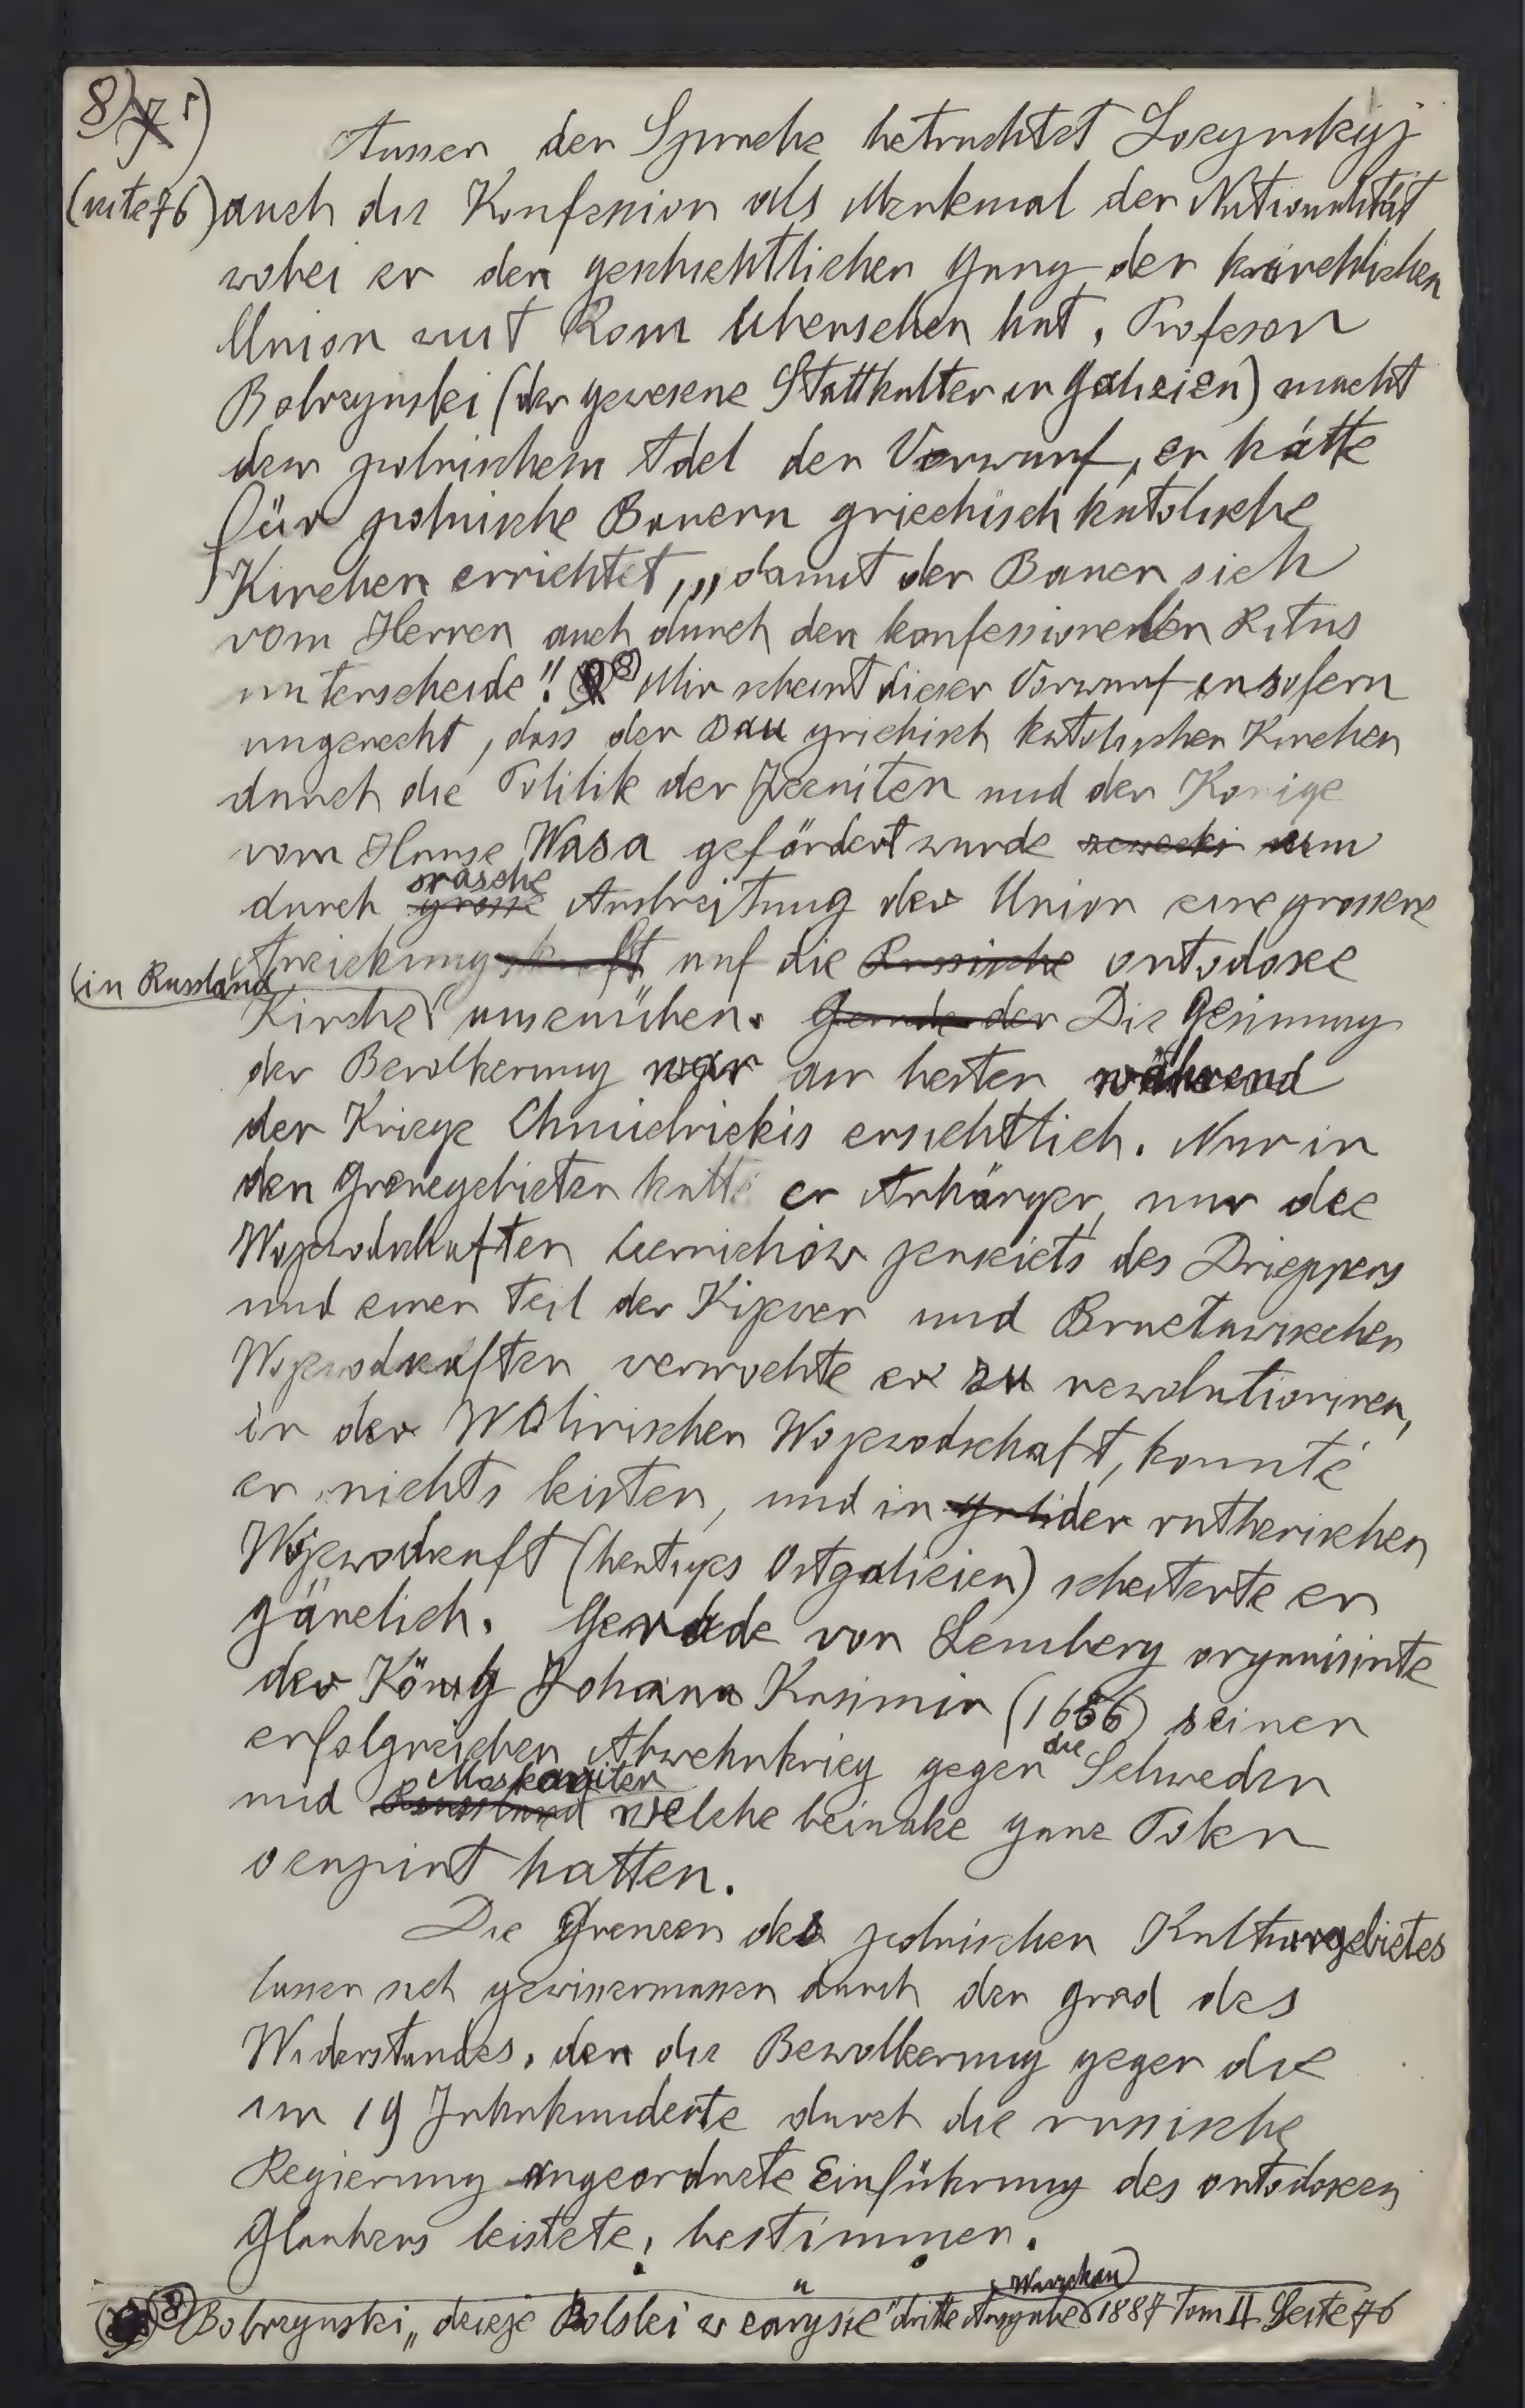 8) 7 5)
Ausser der Sprache betrachtet Lozynskyj
(seite 76) auch die Konfession als Merkmal der Nationalität
wobei er den geschichtlichen Gang der kirchlichen
Union mit Rom übersehen hat. Profesor
Bobrzynski (der gewesene Statthalter in Galizien) macht
dem polnischem Adel den Vorwurf, er hätte
für polnische Bauern griechisch katolische
Kirchen errichtet, „damit der Bauer sich
vom Herren auch durch den konfessionellen Ritus
unterscheide". 8) Mir scheint dieser Vorwurf insofern
ungerecht, dass der Bau grichisch katolischer Kirchen
durch die Politik der Jezuiten und der Konige
vom Hause Wasa gefördert wurde zwecks um
durch grosse rasche Ausbreitung der Union eine grossere
Anziehungskraft auf die Russische ortodoxe
(in Russland) Kirche auszuüben. Gerade der Die Gesinnung
der Bevolkerung war am besten während
der Kriege Chmielnickis ersichtlich. Nur in
den Grenzgebieten hatte er Anhänger, nur die
Wojewodschaften Czernichów jenseits des Drieppers
und einen Teil der Kijewer und Bractawischen
Wojewodschaften vermochte er zu revolutioniren,
in der Wolinischen Wojewodschaft, konnte
er nichts leisten, und in Gali der ruthenischen
Wojewodschaft (heutiges Ostgalizien) scheiterte er
gänzlich. Gerade von Lemberg organisirte
der König Johann Kasimir (1656) seinen
erfolgreichen Abwehrkrieg gegen die Schweden
und Russland Moskowiten welche beinahe ganz Polen
okupirt hatten.
Die Grenzen des polnischen Kulturgebietes
lassen sich gewissermassen durch den Grad des
Widerstandes, den die Bewolkerung gegen die
im 19 Jahrhunderte durch die russische
Regierung angeordnete Einführung des ortodoxen
Glaubens leistete, bestimmen.
8) Bobrzynski „dzieje Polski w zarysie" dritte Ausgabe Warschau 1887 Tom II Seite 76